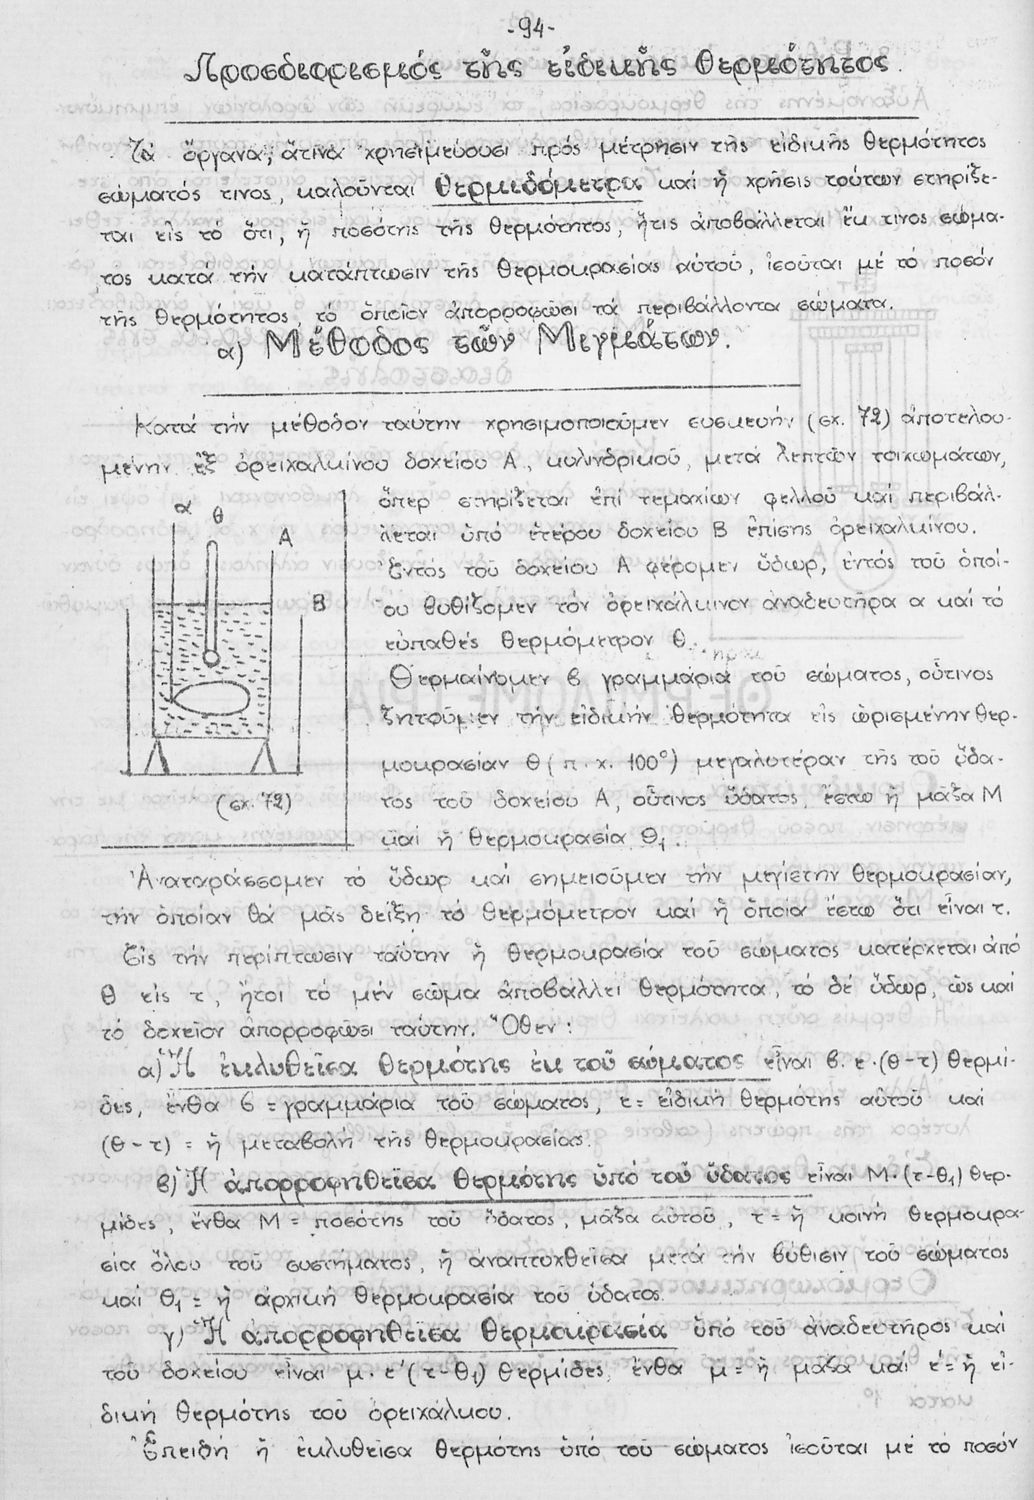 -94-
Προσδιορισμός τῆς εἰδικῆς θερμότητος.
Τά ὄργανα, ἅτινα χρησιμεύουσι πρός μέτρησιν τῆς εἰδικῆς θερμότητος
σώματός τινος, καλοῦνται θερμιδόμετρα καί ἡ χρῆσις τούτων στηρίζε-
ται εἰς τό ὅτι, ἡ ποσότης τῆς θερμότητος, ἥτις ἀποβάλλεται ἔκ τινος σώμα-
τος κατά τήν κατάπτωσιν τῆς θερμοκρασίας αὐτοῦ, ἰσοῦται μέ τό ποσόν
τῆς θερμότητος, τό ὁποῖον ἀπορροφῶσι τά περιβάλλοντα σώματα.
α) Μέθοδος τῶν Μιγμάτων.
Κατά τήν μέθοδον ταύτην χρησιμοποιοῦμεν συσκευήν (σχ. 72) ἀποτελου-
μένην ἐξ ὀρειχαλκίνου δοχείου Α, κυλινδρικοῦ, μετά λεπτῶν τοιχωμάτων,
ὅπερ στηρίζεται ἐπί τεμαχίων φελλοῦ καί περιβάλ-
λεται ὑπό ἑτέρου δοχείου Β ἐπίσης ὀρειχαλκίνου.
Ἐντός τοῦ δοχείου Α φέρομεν ὕδωρ, ἐντός τοῦ ὁποί-
ου βυθίζομεν τόν ὀρειχάλκινον ἀναδευτῆρα α καί τό
εὐπαθές θερμόμετρον θ.
Θερμαίνομεν β γραμμάρια τοῦ σώματος, οὗτινος
ζητοῦμεν τήν εἰδικήν θερμότητα εἰς ὡρισμένην θερ-
μοκρασίαν θ (π.χ. 100°) μεγαλυτέραν τῆς τοῦ ὕδα-
τος τοῦ δοχείου Α, οὗτινος ὕδατος ἔστω ἡ μᾶζα Μ
καί ἡ θερμοκρασία θ₁.
α θ
Α
Β
(σχ. 72)
Ἀναταράσσομεν τό ὕδωρ καί σημειοῦμεν τήν μεγίστην θερμοκρασίαν,
τήν ὁποίαν θά μᾶς δείξῃ τό θερμόμετρον καί ἡ ὁποία ἔστω ὅτι εἶναι τ.
Εἰς τήν περίπτωσιν ταύτην ἡ θερμοκρασία τοῦ σώματος κατέρχεται ἀπό
θ εἰς τ, ἤτοι τό μέν σῶμα ἀποβάλλει θερμότητα, τό δέ ὕδωρ, ὡς καί
τό δοχεῖον ἀπορροφῶσι ταύτην. Ὅθεν:
α) Ἡ ἐκλυθεῖσα θερμότης ἐκ τοῦ σώματος εἶναι β.ε.(θ-τ) θερμί-
δες, ἔνθα β = γραμμάρια τοῦ σώματος, ε = εἰδική θερμότης αὐτοῦ καί
(θ-τ) = ἡ μεταβολή τῆς θερμοκρασίας.
β) Ἡ ἀπορροφηθεῖσα θερμότης ὑπό τοῦ ὕδατος εἶναι Μ.(τ-θ₁) θερ-
μίδες, ἔνθα Μ = ποσότης τοῦ ὕδατος, μᾶζα αὐτοῦ, τ = ἡ κοινή θερμοκρα-
σία ὅλου τοῦ συστήματος, ἡ ἀναπτυχθεῖσα μετά τήν βύθισιν τοῦ σώματος
καί θ₁ = ἡ ἀρχική θερμοκρασία τοῦ ὕδατος.
γ) Ἡ ἀπορροφηθεῖσα θερμοκρασία ὑπό τοῦ ἀναδευτῆρος καί
τοῦ δοχείου εἶναι μ.ε'(τ-θ₁) θερμίδες, ἔνθα μ = ἡ μᾶζα καί ε' = ἡ εἰ-
δική θερμότης τοῦ ὀρειχάλκου.
Ἐπειδή ἡ ἐκλυθεῖσα θερμότης ὑπό τοῦ σώματος ἰσοῦται μέ τό ποσόν